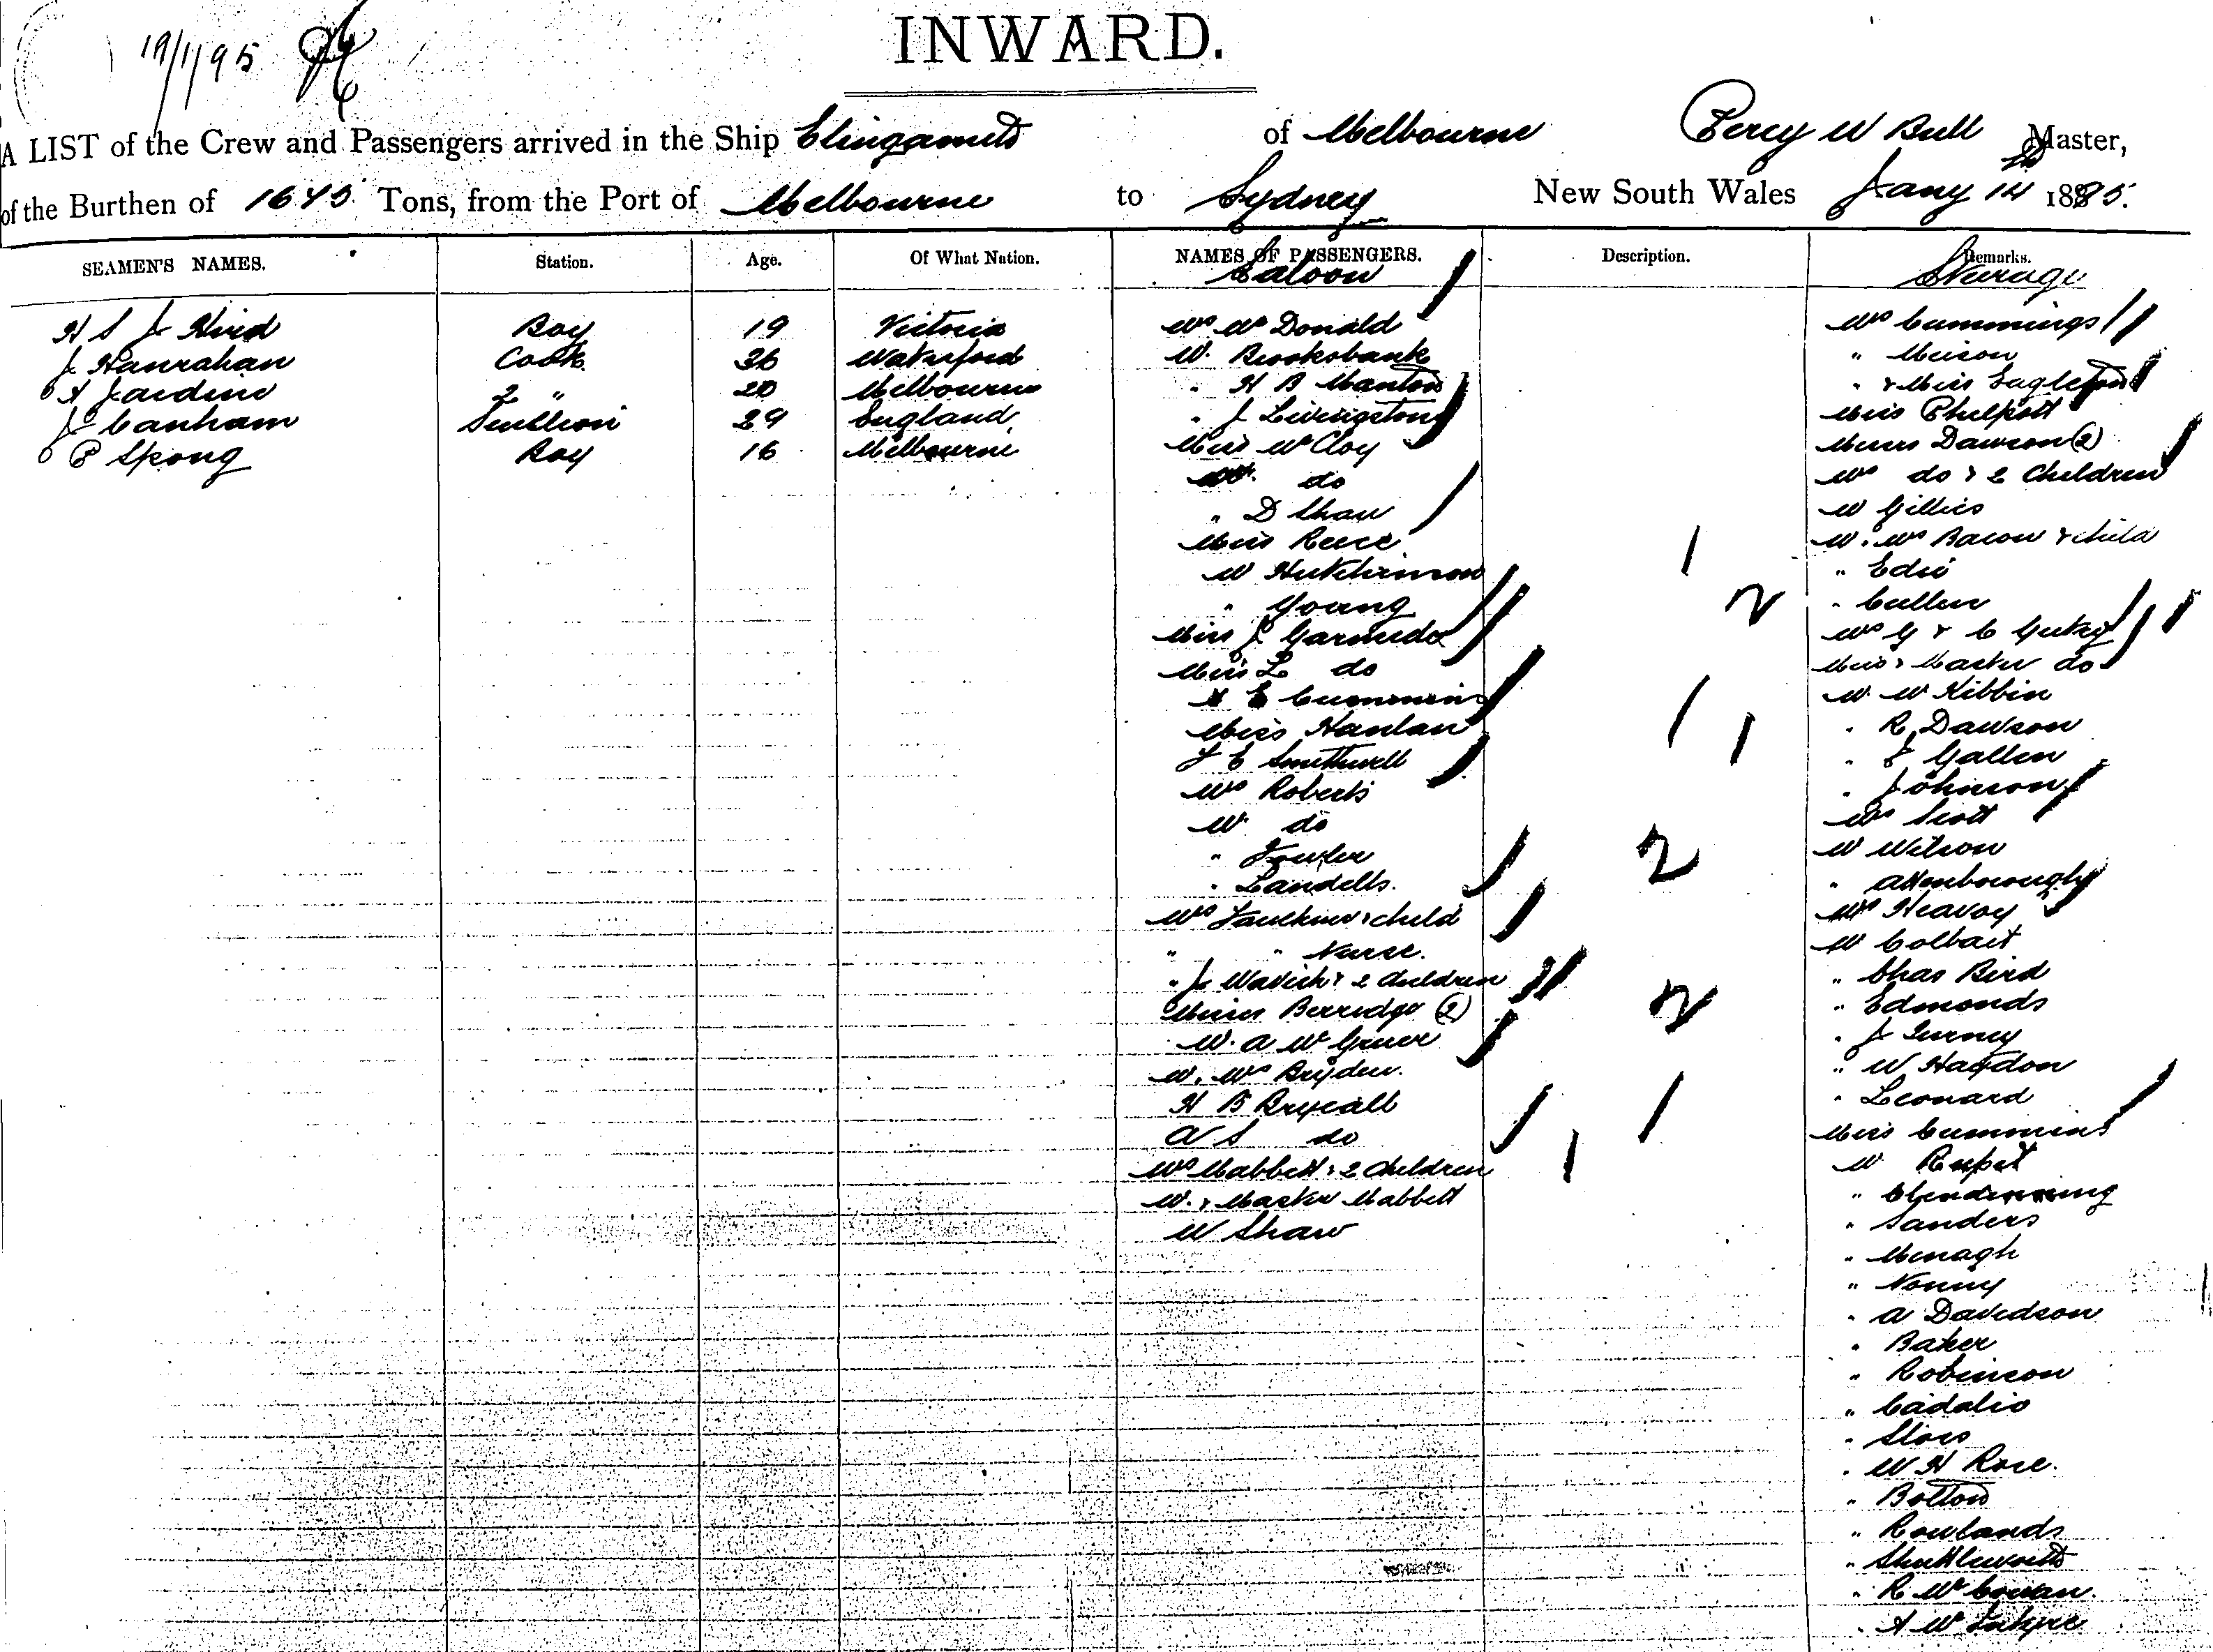 19/1/95
INWARD.
A LIST of the Crew and Passengers arrived in the Ship Elingamite of Melbourne Percy W Bull Master,
of the Burthen of 1645 Tons, from the Port of Melbourne to Sydney New South Wales Jany 14th 1885.
SEAMEN'S NAMES. Station. Age. Of What Nation. NAMES OF PASSENGERS. Description. Remarks.
Saloon Steerage
H S J Hird Boy 19 Victoria
J Hanrahan Cook 36 Waterford
A Jardine 2 " 20 Melbourne
J Canham Scullion 29 England
P Spong Boy 16 Melbourne
Mrs Mc Donald
Mr. Brooksbank
" H B Manton
" J Livingstone
Miss McCloy
do
" D Shaw
Miss Reece
Mr Hutchinson
" Young
Miss J
Miss L do
E Cummin
Miss Hanlan
Mrs Roberts
Mr do
" Fowler
" Landells.
Mrs Faulkner & child
" " Nurse.
" J & 2 Children
Misses Berridge (2)
Mr. A
Mr. Mrs Bryden.
H B
A S do
Mrs Mabbett & 2 Children
Mr. & Master Mabbett
Mr Shaw
1
2
1
1
2
2
1
1
Mrs Cummings
"
" & Miss Eagleton
Miss Philpott
Misses Dawson (2)
Mrs do & 2 Children
Mr Gillies
Mr. Mrs Bacon & child
" Edie
" Cullen
Mrs G & C
Miss & Master do
Mr. McKibbin
" R Dawson
" E Gallen
" Johnson
Mrs Scott
Mr Wilson
" Attenborough
Mrs Heavoy
Mr
" Chas Bird
" Edmonds
" J Gurney
" W Haydon
" Leonard
Miss Cummins
Mr
" Clendinning
" Sanders
" Menagh
"
" A Davidson
" Baker
" Robinson
"
"
" W H Rose.
" Bolton
" Rowlands
" Shuttleworth
" R McCowan
" A McIntyre